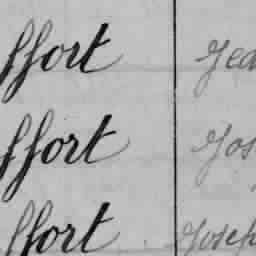 ffort Jea
ffort Jos
ffort Joseph